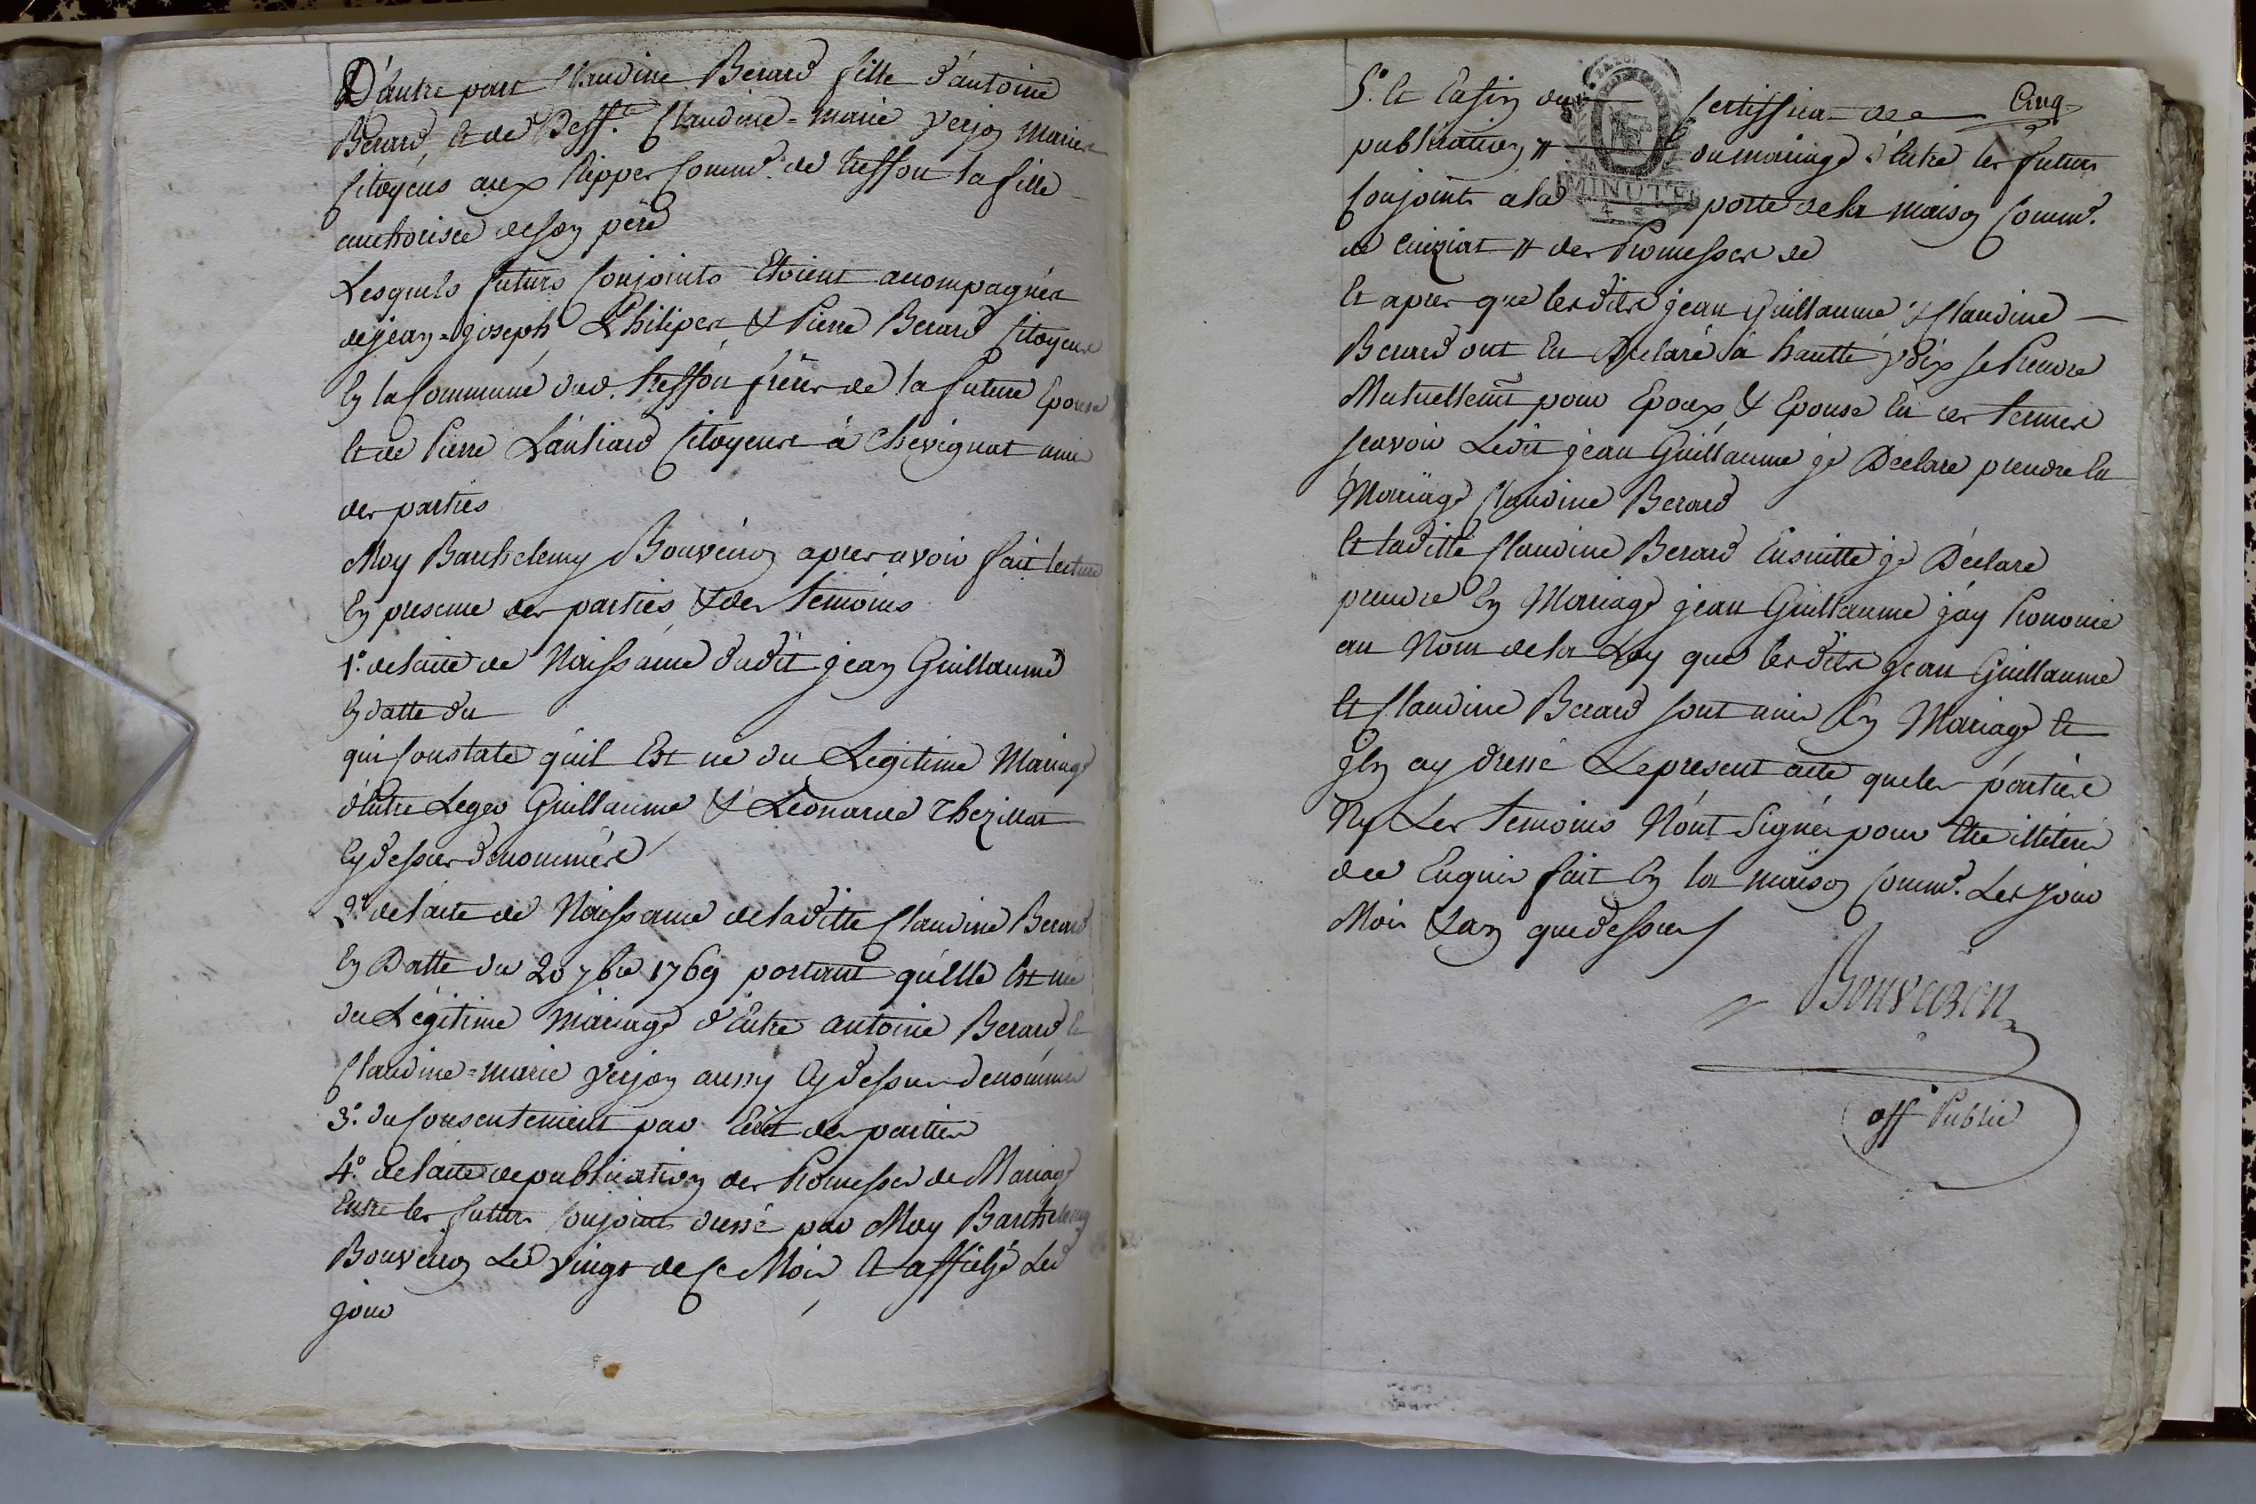 D'autre part Claudine Berard fille d'antoine
Berard, et de Deff.te Claudine=marie Verjon Mariés
Citoyens aux Rippes Comm.é de treffou la fille
authorisée de son père
Lesquels futurs Conjoints Etoient acompagnés
de jean=joseph Philipes & Pierre Berard Citoyens
En la Commune dud. treffou frères de la future Epouse
Et de Pierre Lántiard Citoyens à Chevignat amis
des parties
Moy Barthelemy Bouveiron apres avoir fait lecture
En presence des parties & des temoins
1.° de l'acte de Naissance dudit jean Guillaume
En datte du
qui Constate qu'il Est né du Legitime Mariage
d'Entre Leger Guillaume & Léonarde Thezillat
Cydessus dénommés
2.° de l'acte de Naissance de laditte Claudine Berard
En Datte du 20 7bre 1769 portant qu'Elle Est née
du Légitime Mariage d'Entre antoine Berard &
Claudine=marie Verjon aussy Cydessus dénommés
3.° du Consentement par Ecrit des parties
4.° de l'acte de publication des Promesses de Mariage
Entre les futurs Conjoints dressé par Moy Barthelemy
Bouveiron Le vingt de Ce Mois Et affiché Led
jour
5.° Et Enfin du Certifficat de Cinq
publication # du mariage d'Entre les futurs
Conjoints à la porte de la maison Comm.é
MINUTE
de Cuiziat # des Promesses de
Et apres que lesdits jean Guillaume & Claudine
Berard ont Eu Déclaré à hautte voix se Prendre
Mutuellemt pour Epoux & Epouse En ces termes
scavoir Ledit jean Guillaume je Déclare prendre En
Mariage Claudine Berard
Et laditte Claudine Berard Ensuitte je Déclare
prendre En Mariage jean Guillaume j'ay Prononcé
au Nom de la Loy que lesdits jean Guillaume
Et Claudine Berard sont unis En Mariage Et
j'En ay dressé Le present acte que les parties
Ny Les temoins N'ont Signés pour Etre illiterés
de Enquis fait En la maison Comm.é Les jour
Mois & an que dessus
Bouveiron
off Public